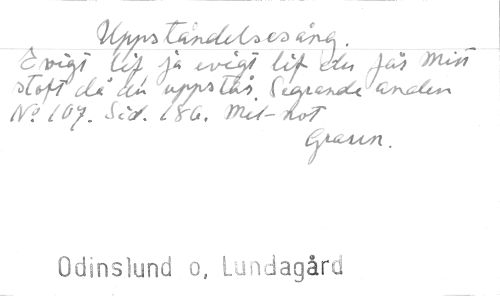 Uppståndelsesång.
Evigt lif ja evigt lif du fås mitt
stoft då du uppstås. Segrande anden
No 107. Sid. 186. Mel-not
Graun.
Odinslund o, Lundagård